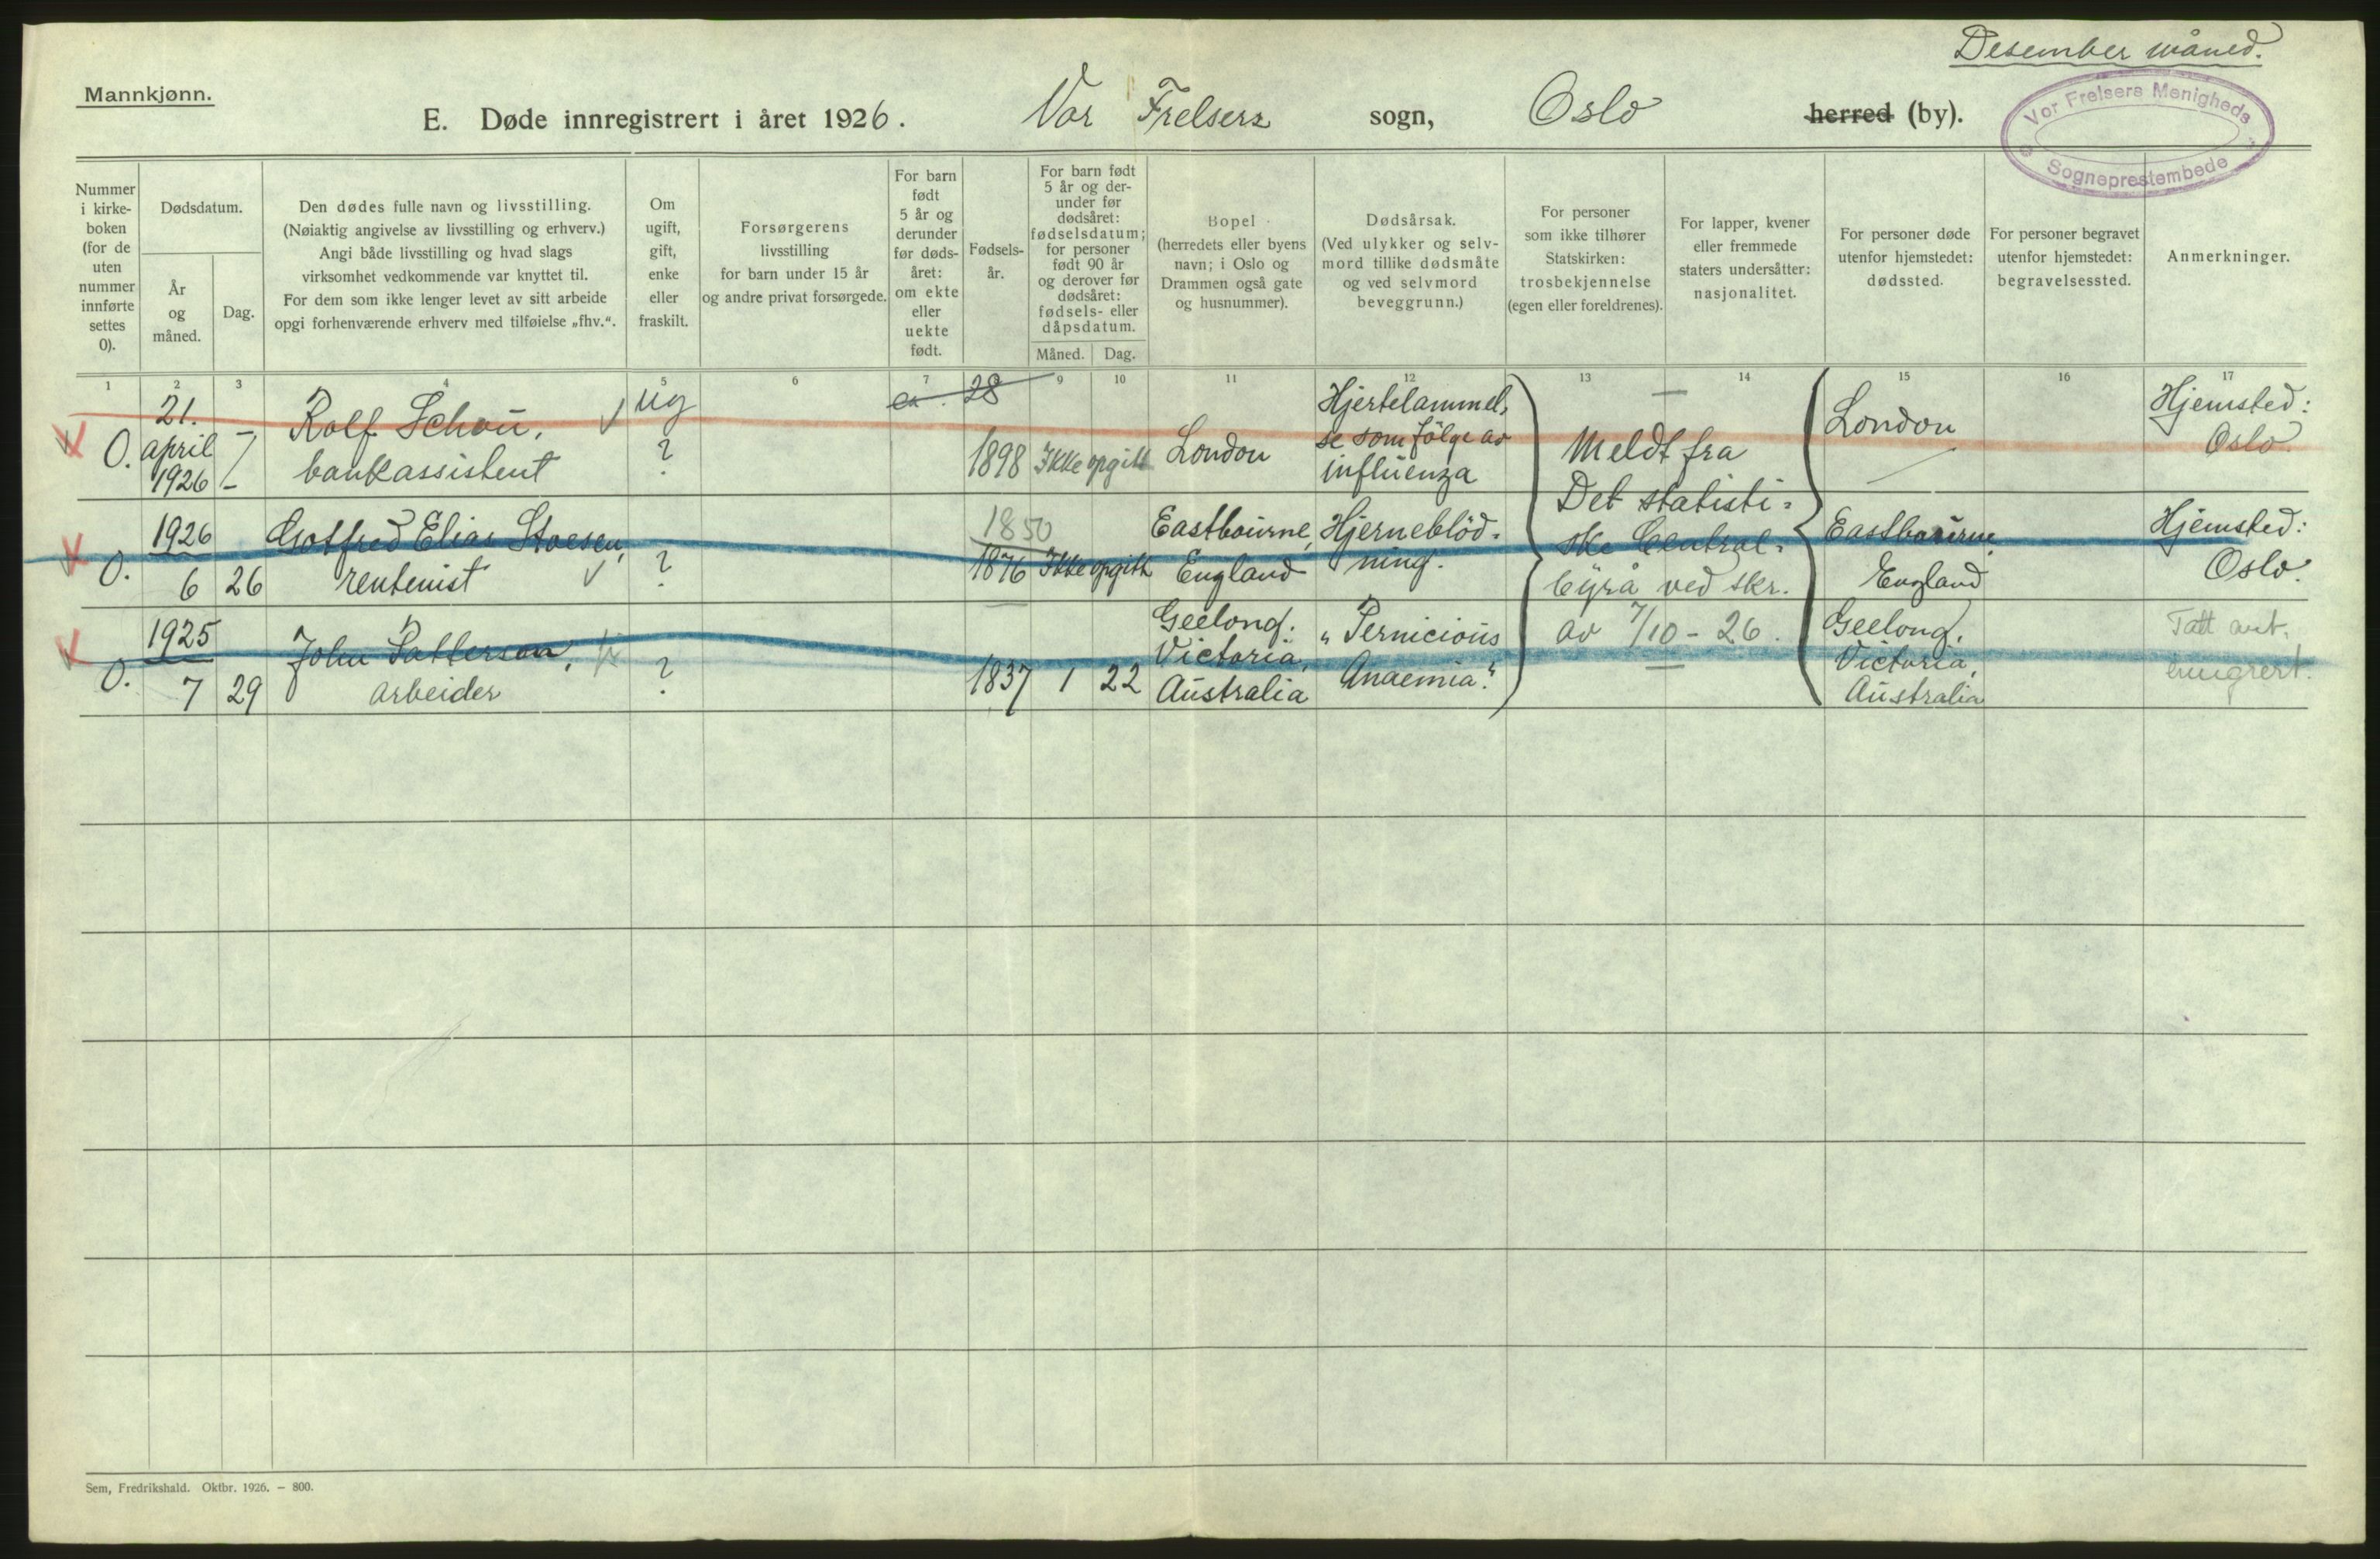 Desember måned.
Mannkjønn.
E. Døde innregistrert i året 1926. Vor Frelsers sogn, Oslo herred (by).
Vor Frelsers Menigheds
Sogneprestembede
Nummer
i kirke-
boken
(for de
uten
nummer
innførte
settes
0).
Dødsdatum.
År
og
måned.
Dag.
Den dødes fulle navn og livsstilling.
(Nøiaktig angivelse av livsstilling og erhverv.)
Angi både livsstilling og hvad slags
virksomhet vedkommende var knyttet til.
For dem som ikke lenger levet av sitt arbeide
opgi forhenværende erhverv med tilføielse „fhv.“.
Om
ugift,
gift,
enke
eller
fraskilt.
Forsørgerens
livsstilling
for barn under 15 år
og andre privat forsørgede.
For barn
født
5 år og
derunder
før døds-
året:
om ekte
eller
uekte
født.
Fødsels-
år.
For barn født
5 år og der-
under før
dødsåret:
fødselsdatum;
for personer
født 90 år
og derover før
dødsåret:
fødsels- eller
dåpsdatum.
Måned. Dag.
Bopel
(herredets eller byens
navn; i Oslo og
Drammen også gate
og husnummer).
Dødsårsak.
(Ved ulykker og selv-
mord tillike dødsmåte
og ved selvmord
beveggrunn.)
For personer
som ikke tilhører
Statskirken:
trosbekjennelse
(egen eller foreldrenes).
For lapper, kvener
eller fremmede
staters undersåtter:
nasjonalitet.
For personer døde
utenfor hjemstedet:
dødssted.
For personer begravet
utenfor hjemstedet:
begravelsessted.
Anmerkninger.
1 2 3 4 5 6 7 9 10 11 12 13 14 15 16 17
0.
21.
april
1926
Rolf Schou,
bankassistent
ug
?
28
1898
Ikke opgitt
London
Hjertelammel-
se som følge av
influenza
London
Hjemsted:
Oslo.
0.
1926
6 26
Gotfred Elias Stoesen,
rentenist
?
1850
1876
Ikke opgitt
Eastbourne,
England
Hjerneblød-
ning.
Eastbourne,
England
Hjemsted:
Oslo.
0.
1925
7 29
John Patterson,
arbeider
?
1837 1 22
Geelong.
Victoria,
Australia
"Pernicious
Anaemia."
Meldt fra
Det statisti-
ske Central-
byrå ved skr.
av 7/10 - 26.
Geelong.
Victoria,
Australia
emigrert.
Sem, Fredrikshald. Oktbr. 1926. — 800.